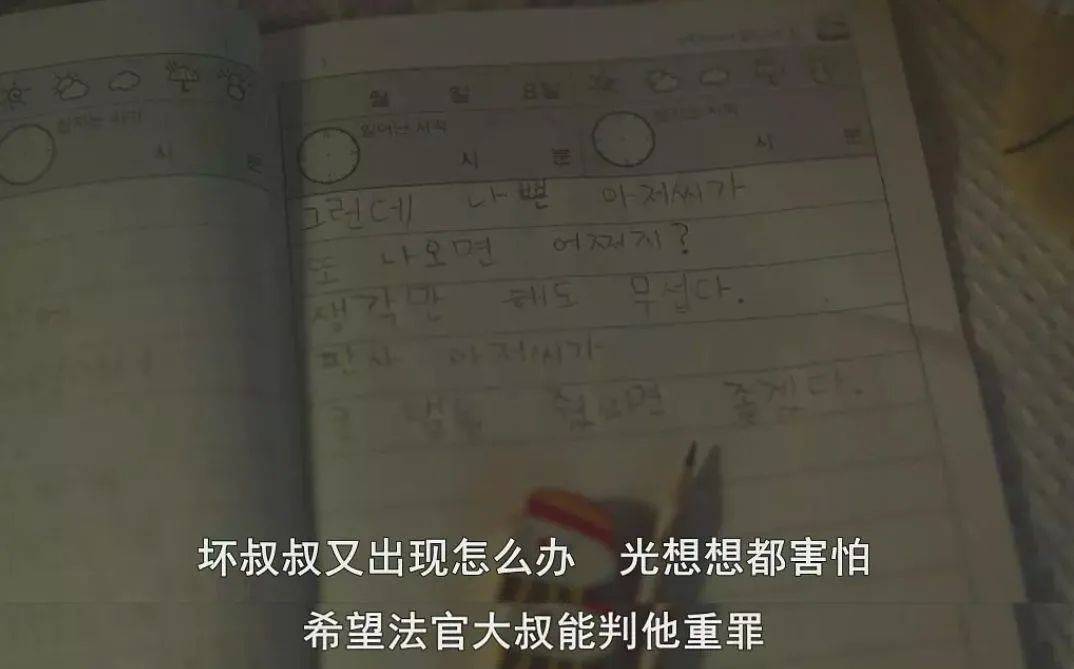 월 일 요일
일어난 시각
시 분
시
그런데 나쁜 아저씨가
또 나오면 어쩌지?
생각만 해도 무섭다.
판사 아저씨가
좋겠다.
坏叔叔又出现怎么办 光想想都害怕
希望法官大叔能判他重罪